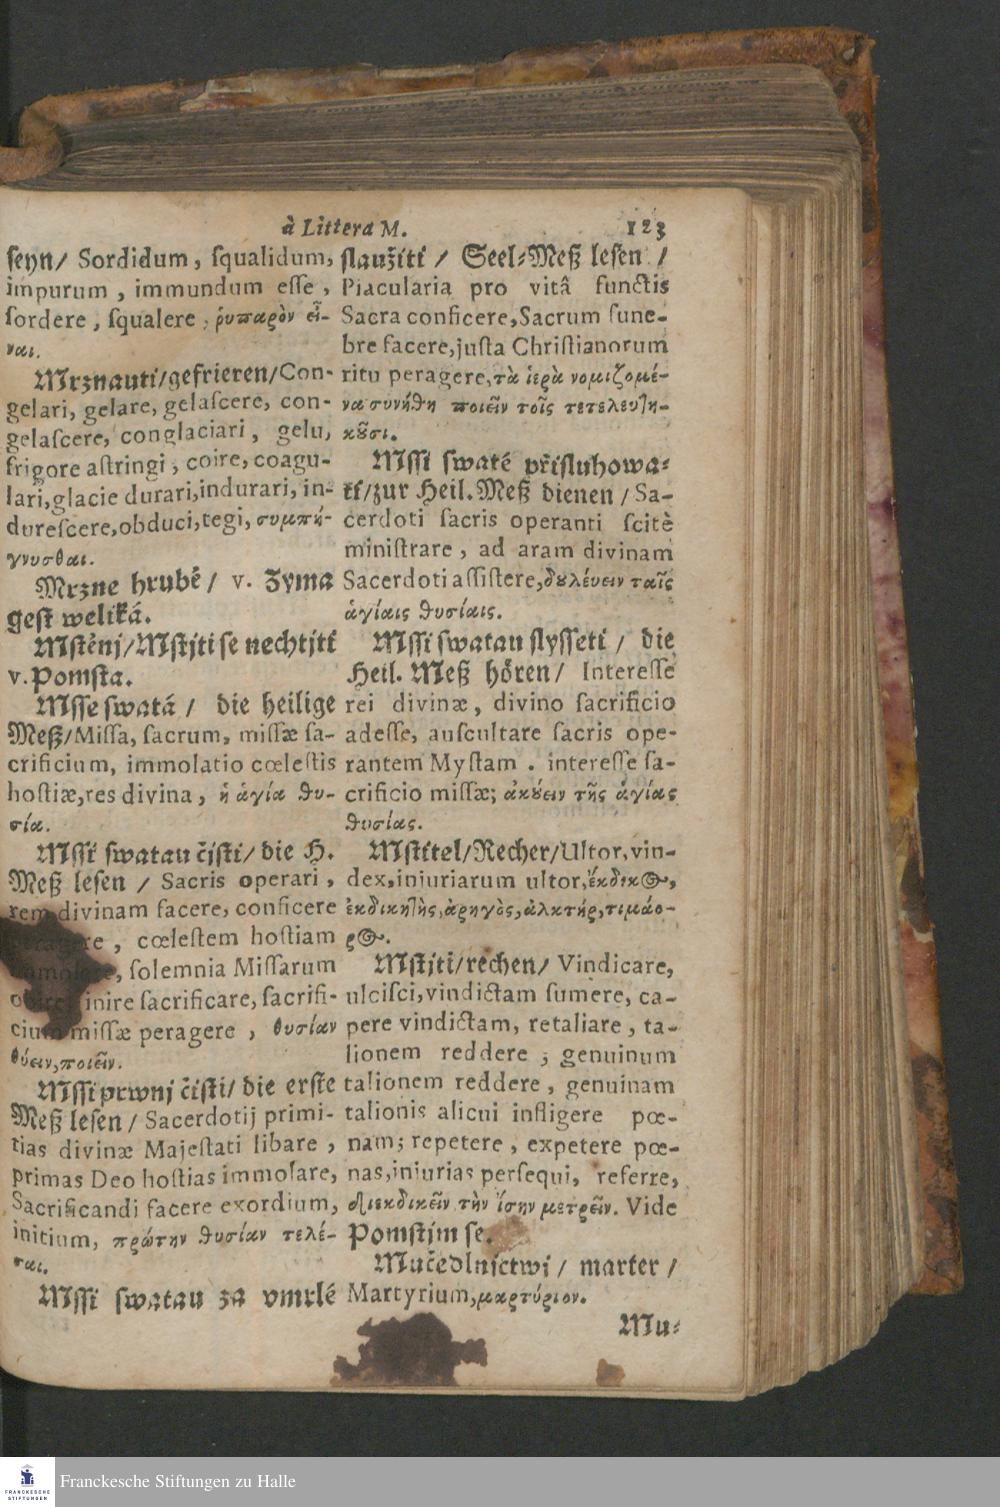 à Littera M. 123
seyn/ Sordidum, squalidum,
impurum, immundum esse,
sordere, squalere, ῥυπαρὸν εἶ-
ναι.
Mrznauti/gefrieren/Con-
gelari, gelare, gelascere, con-
gelascere, conglaciari, gelu,
frigore astringi, coire, coagu-
lari,glacie durari,indurari, in-
durescere,obduci,tegi, συμπή-
γνυσθαι.
Mrzne hrubě/ v. Zyma
gest weliká.
Mstěnj/Mstjti se nechtjti
v. Pomsta.
Msse swatá / die heilige
Meß/Missa, sacrum, missæ sa-
crificium, immolatio cœlestis
hostiæ,res divina, ἡ ἁγία θυ-
σία.
Mssi swatau čjsti/ die H.
Meß lesen / Sacris operari,
rem divinam facere, conficere
peragere, cœlestem hostiam
solemnia Missarum
inire sacrificare, sacrifi-
cium missæ peragere, θυσίαν
θύειν,ποιεῖν.
Mssi prwnj čisti/ die erste
Meß lesen / Sacerdotij primi-
tias divinæ Majestati libare,
primas Deo hostias immolare,
Sacrificandi facere exordium,
initium, πρώτην θυσίαν τελέ-
σαι.
Mssi swatau za vmrlé
slaužiti / Seel-Meß lesen /
Piacularia pro vitâ functis
Sacra conficere,Sacrum fune-
bre facere,justa Christianorum
ritu peragere,τὰ ἱερὰ νομιζομέ-
να συνήθη ποιεῖν τοῖς τετελευτη-
κόσι.
Mssi swaté přisluhowa-
ti/zur Heil. Meß dienen / Sa-
cerdoti sacris operanti scitè
ministrare, ad aram divinam
Sacerdoti assistere,δουλέυειν ταῖς
ἁγίαις θυσίαις.
Mssi swatau slysseti / die
Heil. Meß hören/ Interesse
rei divinæ, divino sacrificio
adesse, auscultare sacris ope-
rantem Mystam. interesse sa-
crificio missæ; ἀκούειν τῆς ἁγίας
θυσίας.
Mstitel/Recher/Ultor,vin-
dex,injuriarum ultor,ἔκδικος,
ἐκδικητὴς,ἀρηγὸς,ἀλκτήρ,τιμάο-
ρος.
Mstjti/rechen/ Vindicare,
ulcisci,vindictam sumere, ca-
pere vindictam, retaliare, ta-
lionem reddere; genuinum
talionem reddere, genuinam
talionis alicui infligere pœ-
nam; repetere, expetere pœ-
nas,injurias persequi, referre,
διεκδικεῖν τὴν ἴσην μετρεῖν. Vide
Pomstjm se.
Mučedlnictwi / marter /
Martyrium,μαρτύριον.
Mu-
Franckesche Stiftungen zu Halle
FRANCKESCHE
STIFTUNGEN